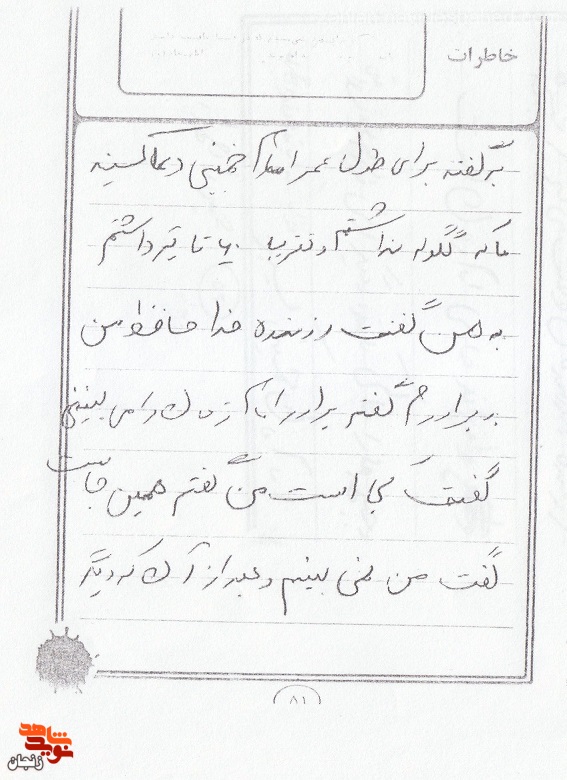 خاطرات
بر گفته برای طول عمر امام خمینی دعا کنید
ما که گلوله نداشتم و تقریبا تا تیر داشتم
به من گفت رزمنده خدا حافظ من
به برادرم گفتم برادر را می بینی
گفت کجا است من گفتم همین جاست
گفت من نمی بینم و بعد از آن که دیگر
۸۱
شاهد
نوید
زنجان